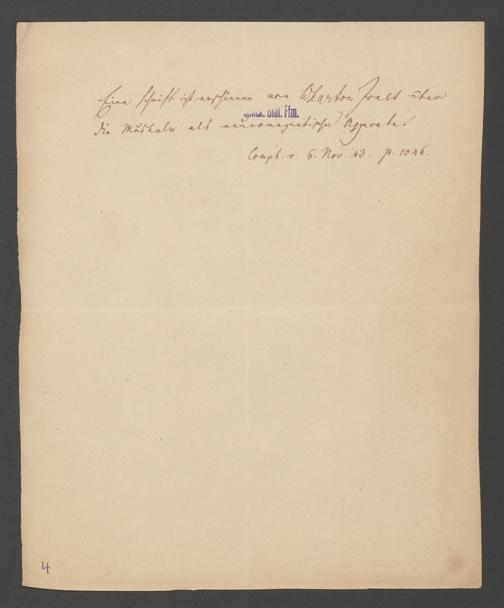 Eine Schrift ist erschienen von Wharton Jones über
Bibl. Ffm.
die Muskeln als neuromagnetische Apparate.
Compt. r. 6. Nov. 43. p. 1046.
4